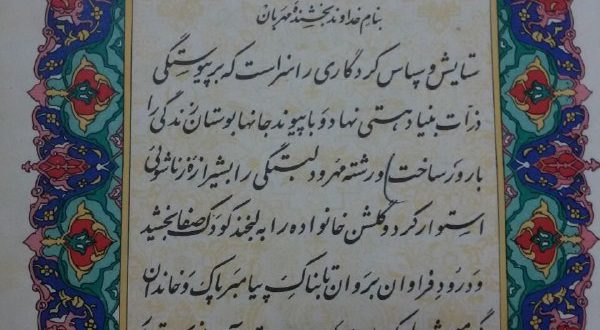 بنام خداوند بخشندهٔ مهربان
ستایش و سپاس کردگاری را سزاست که بر پیوستگی
ذرّات بنیاد هستی نهاد و با پیوند جانها بوستان زندگی را
بارور ساخت و رشته مهر و دلبستگی را بشیرازهٔ زناشوئی
استوار کرد و گلشن خانواده را به لبخند کودک صفا بخشید
و درود فراوان بر روان تابناک پیامبر پاک و خاندان